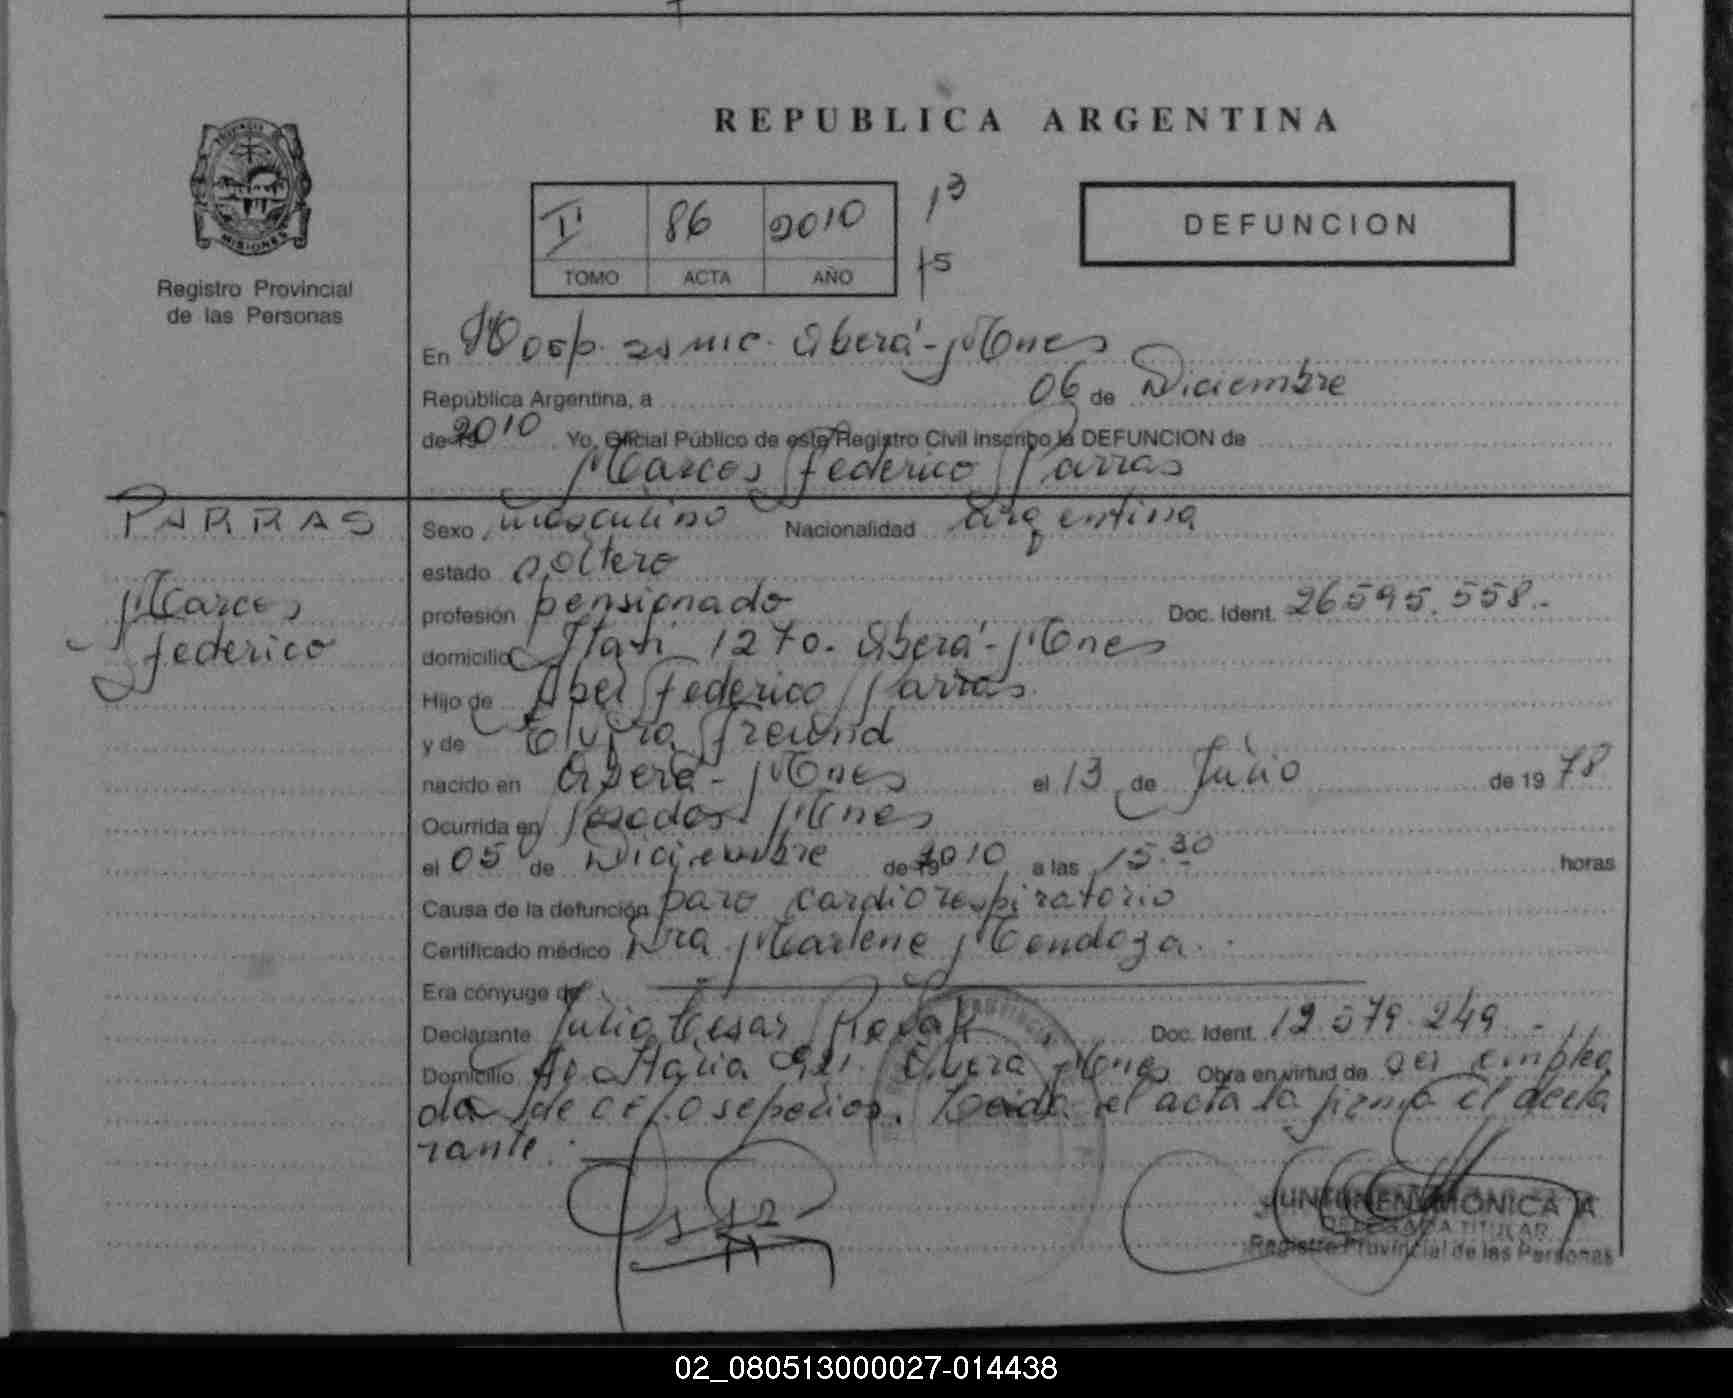 REPUBLICA ARGENTINA
PROVINCIA
MISIONES
Registro Provincial
de las Personas
Iº 86 2010
TOMO ACTA AÑO
13
15
DEFUNCION
En Hosp. Oberá - Mnes
República Argentina, a 06 de Diciembre
de 19 2010 Yo, Oficial Público de este Registro Civil inscribo la DEFUNCION de
Marcos Federico Parras
PARRAS
Marcos
Federico
Sexo masculino Nacionalidad Argentina
estado soltero
profesión pensionado Doc. Ident. 26595.558.-
domicilio Itatí 1270. Oberá - Mnes
Hijo de Abel Federico Parras.
y de Elvira Freiund
nacido en Oberá - Mnes el 13 de Julio de 19 78
Ocurrida en Posadas Mnes
el 05 de Diciembre de 19 2010 a las 15.30 horas
Causa de la defunción paro cardiorespiratorio
Certificado médico Dra Marlene Mendoza.
Era cónyuge de
Declarante Julio Cesar Doc. Ident. 12.579.249.-
Domicilio Oberá Mnes Obra en virtud de ser emplea
do de sepelios. Leida el acta la firma el decla
rante.
MONICA A
DELEGADA TITULAR
Registro Provincial de las Personas
02_080513000027-014438